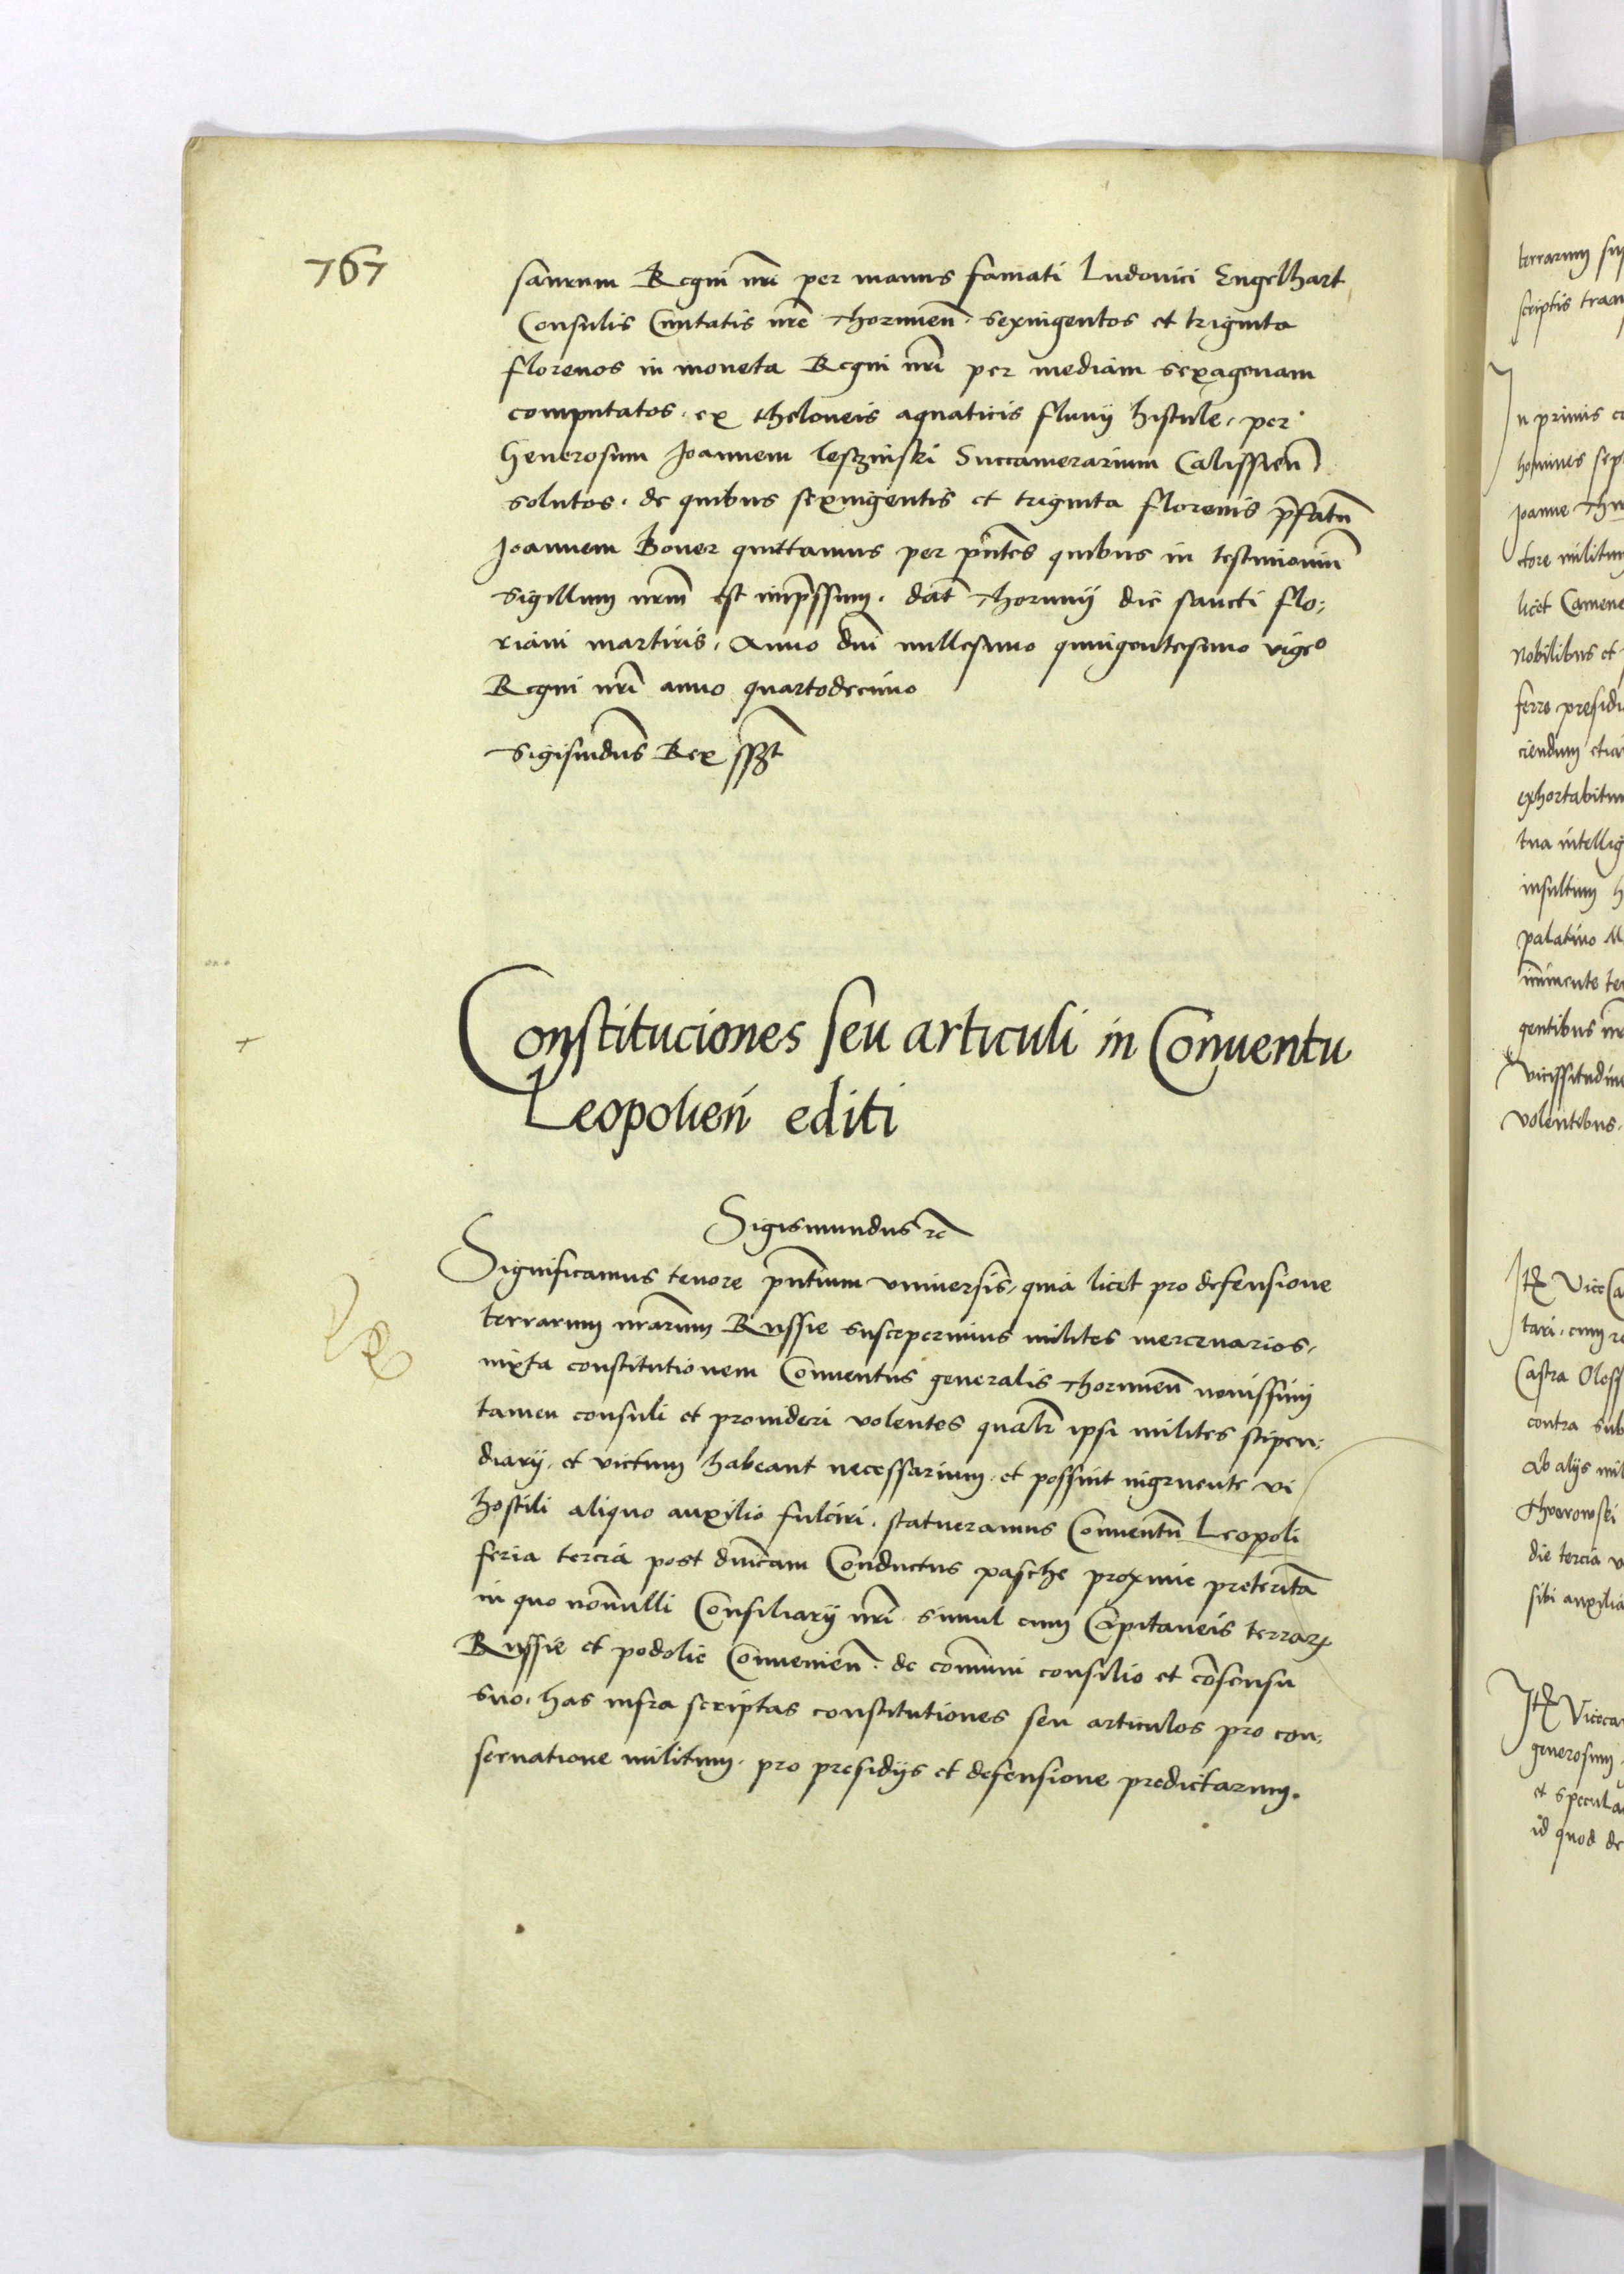 767
saurum Regni nrı per manus famati Ludovici Engelhart
Consulis Ciuitatis nrẽ Thorunien̄. sexingentos et triginta
florenos in moneta Regni nrı per mediam sexagenam
computatos. ex theloneis aquaticis fluuij histule, per
Generosum Joannem Leszinski Succamerarium Calissien̄
solutos. de quibus sexingentis et triginta florenis p̄fatū
Joannem Boner quittamus per p̄ntes quibus in testimoniū
Sigillum nrm̄ est imp̄ssum. dat̄ Thorunij die sancti flo:
riani martiris, Anno dnı millesimo quingentesimo vigeo
Regni nrı anno quartodecimo
Sigismdus Rex sszt
Constituciones seu articuli in Conuentu
Leopolien̄ editi
Sigismundus rc̄
Significamus tenore p̄ntium vniuersis, quia licet pro defensione
terrarum nrarum Russie susceperimus milites mercenarios,
iuxta constitutionem Conuentus generalis Thorunien̄ nouissimi
tamen consuli et prouideri volentes qualr̄ ipsi milites stipen:
diarij, et victum habeant necessarium. et possint ingruente vi
hostili aliquo auxilio fulciri. statueramus Conuentū Leopoli
feria tercia post dnicam Conductus pasche proxime preteritā
in quo nōnulli Consiliarij nrı simul cum Capitaneis terrarꝝ
Russie et podolie Conuenien̄. de cōmuni consilio et cōsensu
suo. has infra scriptas constitutiones seu articulos pro con:
seruatione militum. pro presidijs et defensione predictarum.
terrarum
scriptis
In primis
homines
Joanne
ctore militum
licet
Nobilibus et
ferre
ciendum
exhortabitur
tua
insultum
palatino
imminente
gentibus
vicissitudine
volentibus.
Itꝫ Vice
tari. cum
Castra
contra
Ab alijs
die tercia
sibi
Itꝫ
generosum
et
id quod de